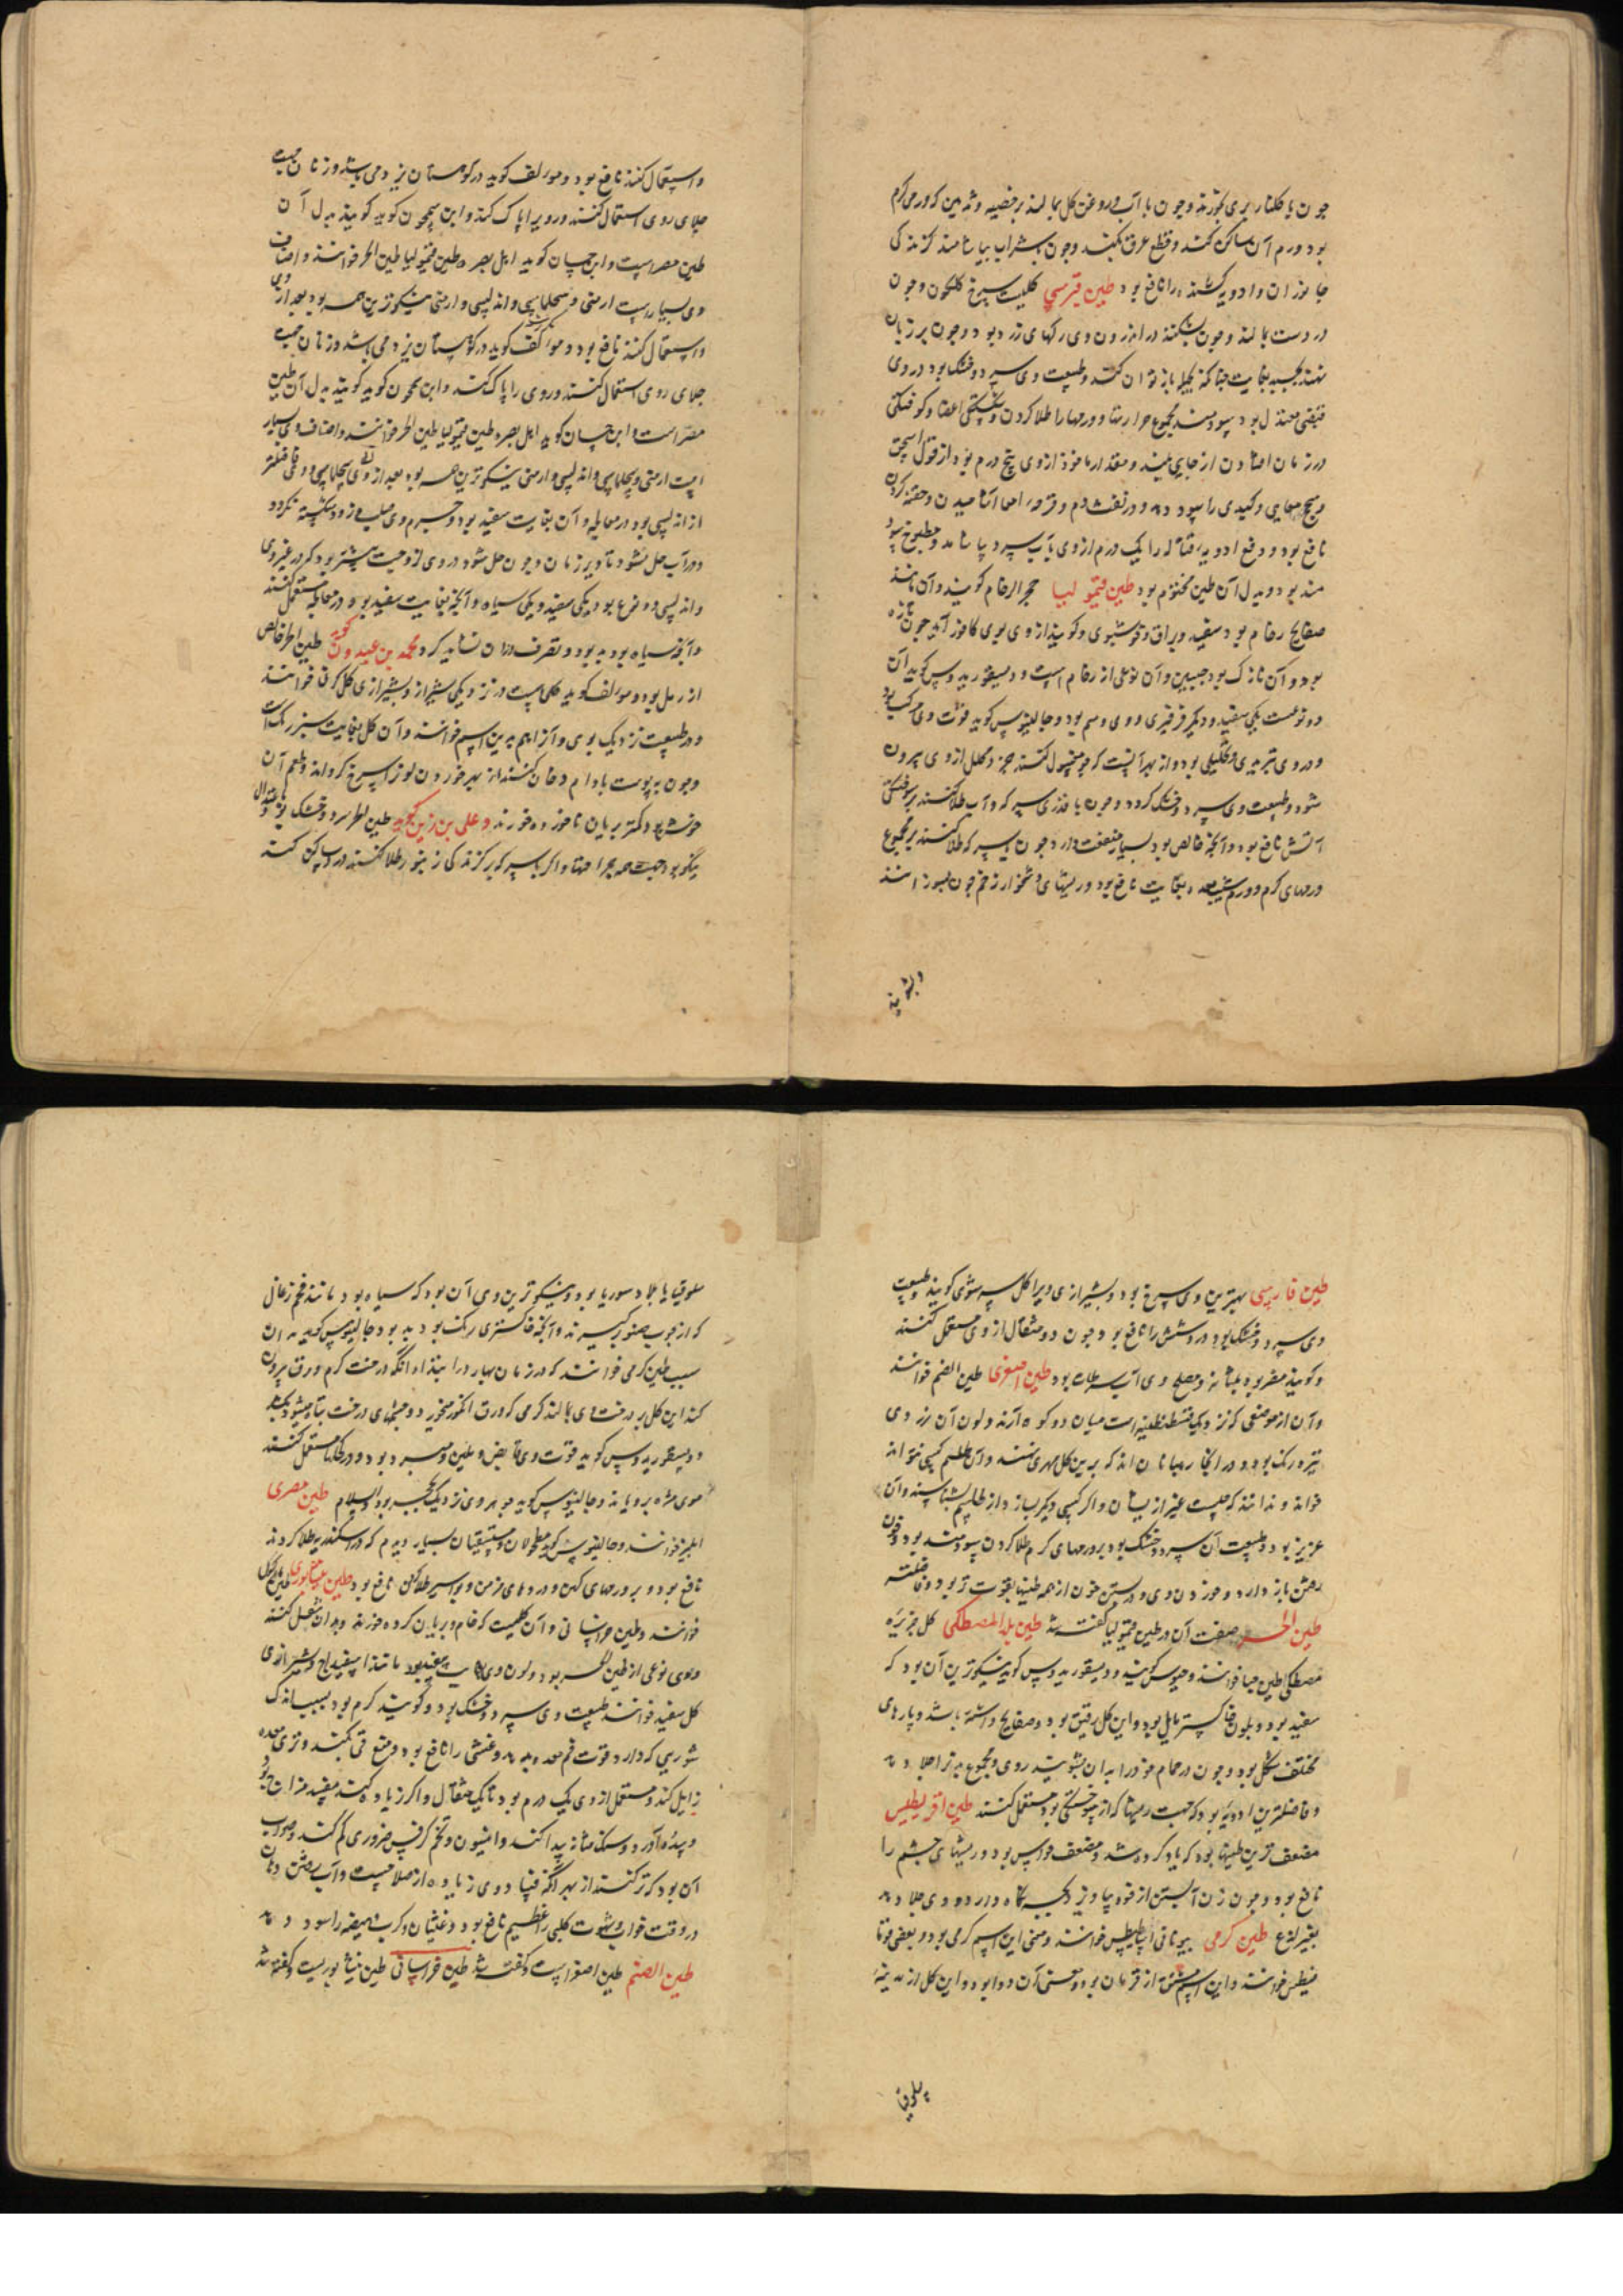 چون با کلنار بری بخورند و چون با آب و روغن کل بمالند بر خصیه و ثدیین که ورمی کرم
بود ورم آن ساکن کند و قطع عرق بکند و چون بشراب بیاشامند کزندکی
جانوران و ادویه کشنده را نافع بود طین قبرسی کلیست سرخ کلکون و چون
در دست بمالند و چون بشکنند در اندرون وی رکهای زرد بود و چون بر زبان
نهند بچسبد بغایت چنانکه بحیله باز توان کند و طبیعت وی سرد و خشک بود در وی
قبضی معتدل بود سودمند بود مجموع حرارتها و ورمها را طلا کردن و شکستکی اعضا و کوفتکی
در زمان افتادن از جایی بلند و مقدار ماخوذ از وی پنج درم بود از قول اسحق
سحج معایی و کبدی را سود دهد و در نفث دم و قرحه امعا آشامیدن و حقنه کردن
نافع بود و دفع ادویه قتاله را یک درم از وی بآب سرد بیاشامد و مطبوخ سود
مند بود و بدل آن طین مختوم بود طین قیمولیا حجر الرخام کویند و آن مانند
صفایح رخام بود سفید و براق و خوشبوی و کویند از وی بوی کافور آید چون تازه
بود و آن نازک بود جبسین و آن نوعی از رخام است و دیسقوریدوس کوید آن
دو نوعست یکی سفید و دیکر فرفیری و وی دسم بود و جالینوس کوید قوت وی مرکب بود
و در وی تبریدی و تحلیلی بود و از بهر آنست که چو مغسول کنند جزو محلل از وی بیرون
شود و طبیعت وی سرد و خشک کردد و چون با قدری سرکه و آب طلا کنند بر سوختکی
آتش نافع بود و آنچه خالص بود بسیار منفعت دارد چون بسرکه طلا کنند بر مجموع
ورمهای کرم و ورم شش معده بغایت نافع بود و ریشهای دشخوار زخم چون بسوزانند
و بشویند
و استعمال کنند نافع بود و مولف کوید در کوهستان یزد می باشد و زنان جهت
جلای روی استعمال کنند و رو را پاک کند و ابن سمجون کوید کویند بدل آن
طین مصر است و ابن حسان کوید اهل بصره طین قیمولیا طین الحر خوانند و اصناف
وی بسیار است ارمنی و سجلماسی و اندلسی و ارمنی نیکوترین همه بود بعد از وی
و استعمال کنند نافع بود و مولف کوید در کوهستان یزد می باشد و زنان جهت
جلای روی استعمال کنند و روی را پاک کند و ابن سمجون کوید کویند بدل آن طین
مصر است و ابن حسان کوید اهل بصره طین قیمولیا طین الحر خوانند و اصناف وی بسیار
است ارمنی و سجلماسی و اندلسی و ارمنی نیکوترین همه بود بعد از وی سجلماسی و وی فاضلتر
از اندلسی بود در معالجه و آن بغایت سفید بود و جسم وی صلب و زود شکسته نکردد
و در آب حل نشود تا دیر زمان و چون حل شود در وی لزوجت بیشتر بود که در غیر وی
و اندلسی دو نوع بود یکی سفید و یکی سیاه و آنچه بغایت سفید بود در معالجه مستعمل کنند
و آنچه سیاه بود بد بود و تصرف در آن نشاید کرد محمد بن عبدون کوید طین الحر خالص
از رمل بود و مولف کوید کلی است در نزدیکی شیراز و بشیرازی کل کرفی خوانند
و در طبیعت نزدیک بوی و آنرا هم بدین اسم خوانند و آن کل بغایت سبز رنک است
و چون به پوست بادام دخان کنند از بهر خوردن لون او سرخ کردانند و طعم آن
خوشتر بود و کمتر بریان ناخورده خورند و علی بن زین کوید طین الحر سرد و خشک بود و باعتدال
نیکو بود جهت همه جراحتها و اکر با سرکه بر کزندکی زنبور طلا کنند درد ساکن کند
طین فارسی بهترین وی سرخ بود و بشیرازی ویرا کل سر شوی کویند و طبیعت
وی سرد و خشک بود درد شش را نافع بود چون دو مثقال از وی مستعمل کنند
و کویند مضر بود بمثانه و مصلح وی آب سرطان بود طین اصفری طین الصنم خوانند
و آن از موضعی که نزدیک قسطنطنیه است میان دو کوه آرند و لون آن زردی
تیره رنک بود و در آنجا رهبانان اند که برین کل مهری نهند و آن طلسم کسی نتواند
خواند و ندانند که چیست غیر از ایشان و اکر کسی دیکر بسازد از طلسم بشناسند و آن
عزیز بود و طبیعت آن سرد و خشک بود بر ورمهای کرم طلا کردن سودمند بود و خون
رفتن باز دارد و خوردن وی و در بستن خون از همه طینها بقوت تر بود و فاضلتر
طین الحر صفت آن در طین قیمولیا کفته شد طین بلد المصطکی کل جزیره
مصطکی طین جیا خوانند و جیوس کویند و دیسقوریدوس کوید نیکوترین آن بود که
سفید بود و بلون خاکستر مایل بود و این کل رقیق بود و صفایح داشته باشد و پارهای
مختلف شکل بود و چون در حمام خود را بدان بشویند روی و مجموع بدن را جلا دهد
و فاضلترین ادویه بود که جهت ریشها که از سوختکی بود مستعمل کنند طین اقریطس
ضعیف ترین طینها بود که یاد کرده شد و مضعف حواس بود و ریشهای چشم را
نافع بود و چون زن آبستن از خود بیاویزد بچه نکاه دارد و وی جلا دهد
بغیر لذع طین کرمی بیونانی ابنالیطس خوانند و معنی این اسم کرمی بود و بعضی فوقا
مسطس خوانند و این اسم مشتق از قرمان بود و معنی آن دوا بود و این کل از مدینه
سلوقیا
سلوقیا یا بلاد سوریا بود و نیکوترین وی آن بود که سیاه بود مانند فحم زغالی
که از چوب صنوبر کیرند و آنچه خاکستری رنک بود بد بود جالینوس کوید بدان
سبب طین کرمی خوانند که در زمان بهار در ابتدا و آنکه درخت کرم ورق بیرون
کند این کل بر درختهای بمالند کرمی که ورق انکور میخورد و چشمهای درخت تباه میشود بکشد
و دیسقوریدوس کوید قوت وی قابض و ملین و مبرد بود و در کحلها مستعمل کنند
موی مژه برویاند و جالینوس کوید جوهر وی نزدیک بحجر بود والسلام طین مصری
ابلیز خوانند و جالینوس کوید مطحولان و مستسقیان بسیار دیدم که در اسکندریه طلا کردند
نافع بود و بر ورمهای کهن و دردهای مزمن و بواسیر طلا کردن نافع بود طین نیشابوری طین مأکول
خوانند و طین خراسانی و آن کلیست که خام و بریان کرده خورند و بدان تنقل کنند
و وی نوعی از طین الحر بود و لون وی بغایت سفید بود مانند اسفیداج و شیرازی
کل سفید خوانند طبیعت وی سرد و خشک بود و کویند کرم بود بسبب اندک
شوری که دارد قوت فم معده بدهد و غشی را نافع بود و منع قی بکند و تری معده
زایل کند و مستعمل از وی یک درم بود تا یک مثقال و اکر زیاده کند مفسد مزاج بود
و سده آورد و سنک مثانه پیدا کند و انیسون و تخم کرفس ضروری کم کند و صواب
آن بود که ترک کنند از بهر آنکه فساد وی زیاده از صلاحیست و آب رفتن دهان
در وقت خواب و شهوت کلبی را عظیم نافع بود و غثیان و کرب هیضه را سود دهد
طین الصنم طین اصفر است و کفته شد طین خراسانی طین نیشابوریست و کفته شد